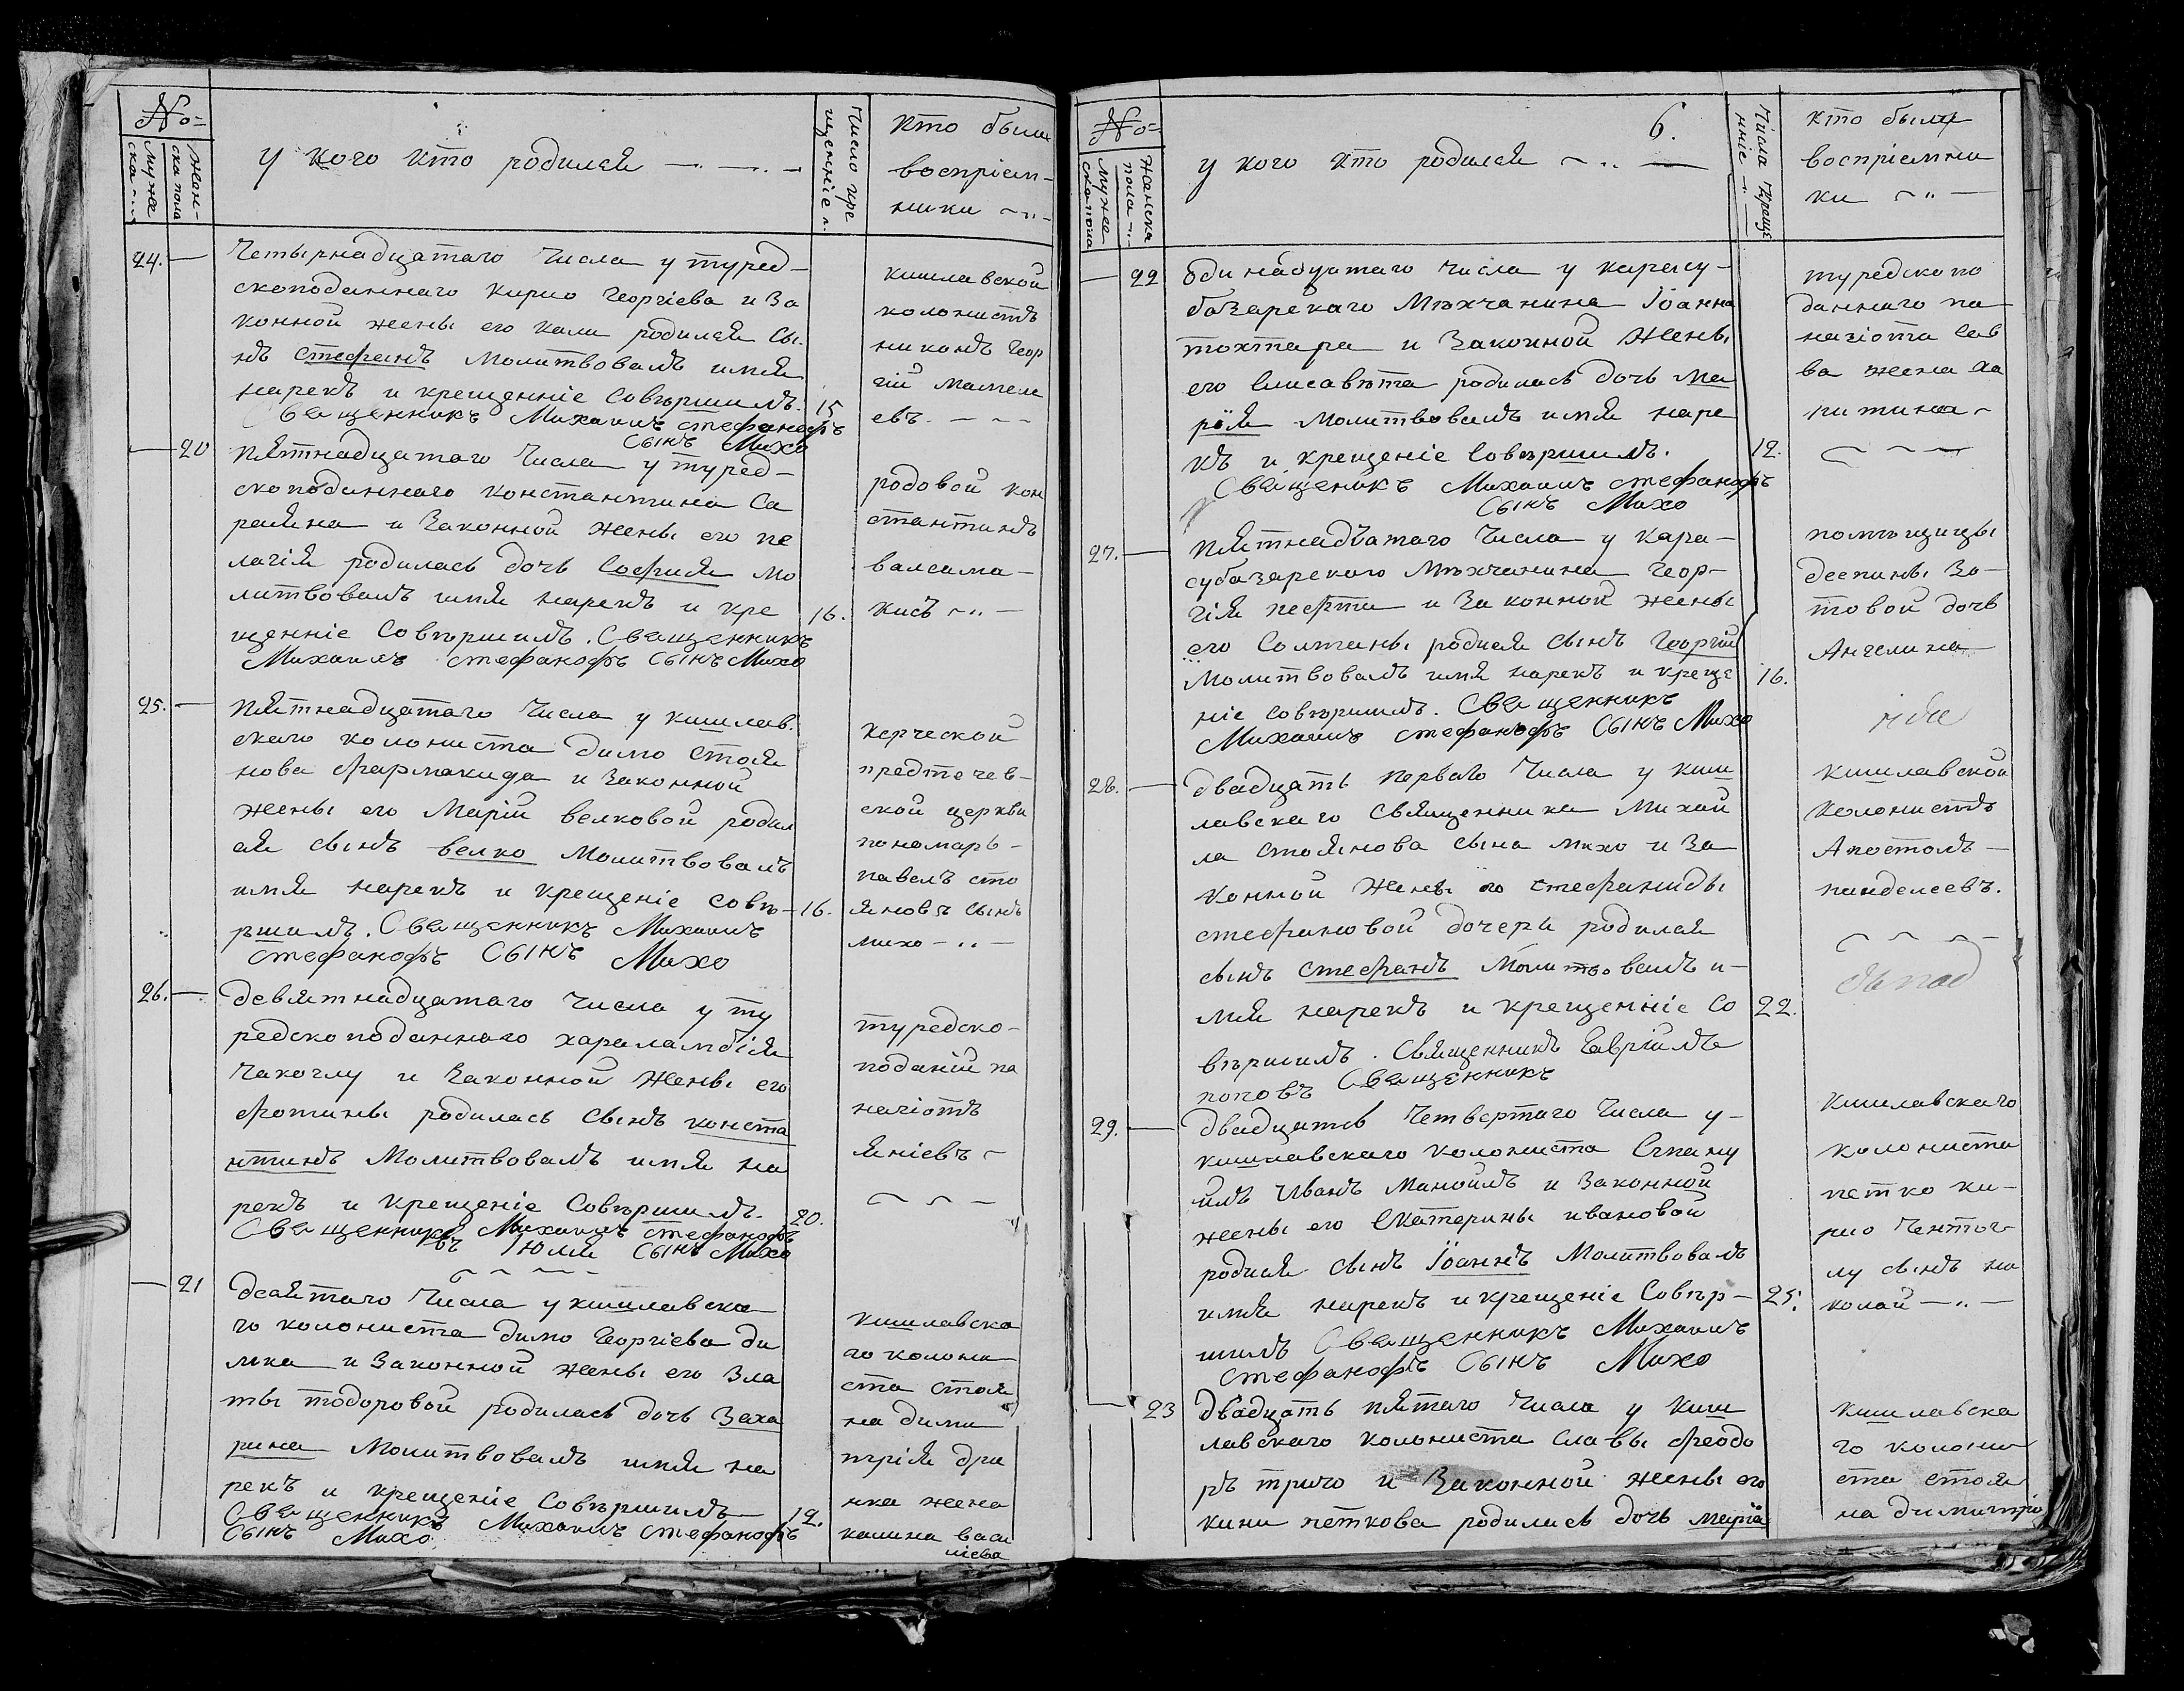 №
Мужес
ска
Жен-
ска пола
у кого кто родился
Число кре
щенніе
кто были
воспріем-
ники
24.
Четырнадцатаго Числа у турец-
скоподаннаго Кирио Георгіева и За
конной жены его Кали родился Сы-
нъ Стефанъ Молитвовалъ имя
нарекъ и крещенніе Совѣршилъ.
Священникъ Михаилъ Стефанофъ
Сынъ Михо
15
кишлавской
колонистъ
никонъ Геор
гій
евъ.
20
пятнадцатаго Числа у турец-
скоподаннаго Константина Са
раяна и Законной Жены его пе
лагія родилась дочь Софія Мо
литвовалъ имя нарекъ и кре
щенніе Совѣршилъ. Священникъ
Михаилъ Стефанофъ Сынъ Михо
16.
родовой кон
стантинъ
валсама-
кисъ
25.
пятнадцатаго Числа у кишлав-
скаго колониста димо Стоя
нова фармакида и Законной
Жены его Маріи велковой родил
ся сынъ велко Молитвовалъ
имя нарекъ и крещеніе совѣ-
ршилъ. Священникъ Михаилъ
Стефанофъ Сынъ Михо
16.
керческой
предтечев-
ской церкви
пономарь-
павелъ сто
яновъ сынъ
михо
26.
девятнадцатаго Числа у ту
редскоподаннаго харалампія
Чакоглу и Законной Жены его
фотины родилась Сынъ конста
нтинъ Молитвовалъ имя на
рекъ и крещеніе Совѣршилъ.
Священникъ Михаилъ Стефанофъ
Сынъ Михо
въ Юлія
20.
турецко-
поданій па
нагіотъ
яніевъ
21
десятаго Числа у кишлавска
го колониста димо Георгіева ди
мка и Законной Жены его Зла
ты тодоровой родилась дочь Заха
рина Молитвовалъ имя на
рекъ и крещеніе Совѣршилъ
Священникъ Михаилъ Стефанофъ
Сынъ Михо
12.
кишлавска
го колони
ста стоя
на дими
трія дра
нка жена
калина васи
лієва
№
Мужес
скапола
Женска
пола
у кого кто родился
6.
Числа Креще
нніе
кто были
воспріемни
ки
22
одинадцатаго числа у карасу-
базарскаго Мѣхчанина Іоанна
тохтара и Законной Жены
его Елисавѣта родилась дочь Ма
рія Молитвовалъ имя наре
къ и крещеніе Совѣршилъ.
Священикъ Михаилъ Стефанофъ
Сынъ Михо
12.
турецкопо
даннаго па
нагіота Сав
ва жена ха
ритина
27.
пятнадцатаго Числа у Кара-
субазарскаго Мѣхчанина Геор-
гія песфти и Законной жены
его Солтаны родися Сынъ Георгій
Молитвовалъ имя нарекъ и креще
ніе совѣршилъ. Священникъ
Михаилъ Стефанофъ Сынъ Михо
16.
помѣщицы
деспины Зо-
товой дочь
Ангелина
28.
двадцать перваго Числа у киш
лавскаго Священника Михай
ла Стоянова сына михо и За
конной Жены его Стефаниды
стефановой дочери родился
сынъ Стефанъ Молитвовалъ и-
мя нарекъ и крещенніе Со
вѣршилъ. Священникъ Гавріилъ
поповъ Священникъ
22.
кишлавской
Колонистъ
Апостолъ
панделеевъ.
29.
двадцать Четвертаго Числа у-
кишлавскаго колониста
Иванъ Манойлъ и Законной
жены его Екатерины ивановой
родися сынъ Іоаннъ Молитвовалъ
имя нарекъ и крещеніе Совѣр-
шилъ Священникъ Михаилъ
Стефанофъ Сынъ Михо
25.
Кишлавскаго
колониста
петко ки-
рио Чентог
лу сынъ ни
колай
23
двадцать пятаго Числа у киш
лавскаго колониста Славы феодо
ръ тричо и Законной жены его
кини петкова родилась дочь марія
кишлавска
го колони
ста стоя
на димитрія